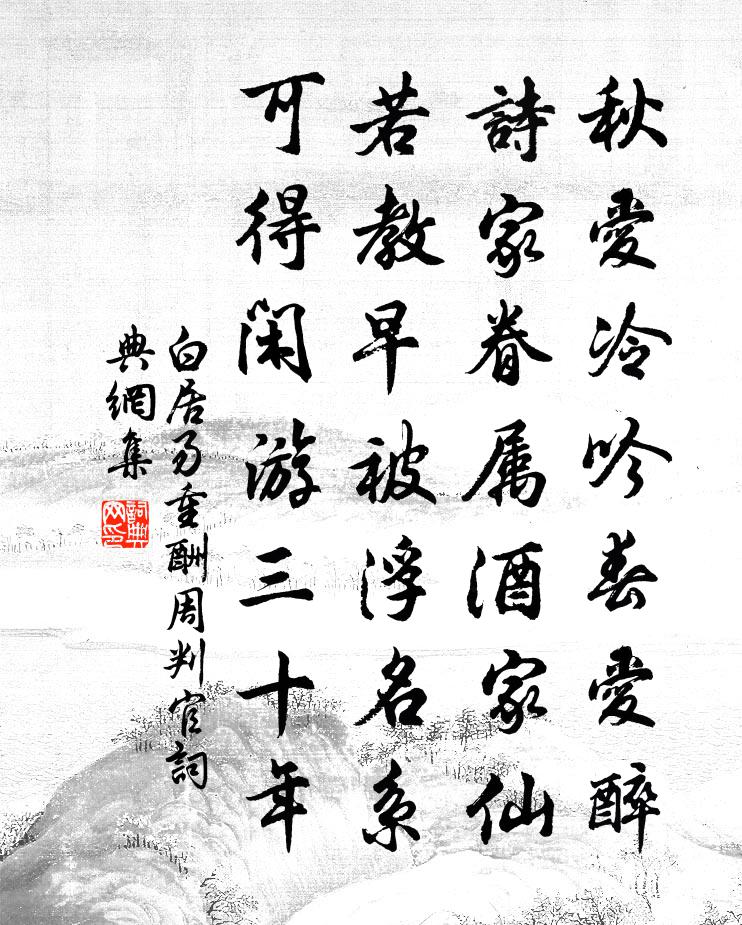 秋愛冷吟春愛醉
詩家眷属酒家仙
若教早被浮名系
可得閑游三十年
白居易重酬周判官詞
典網集
詞典
网印